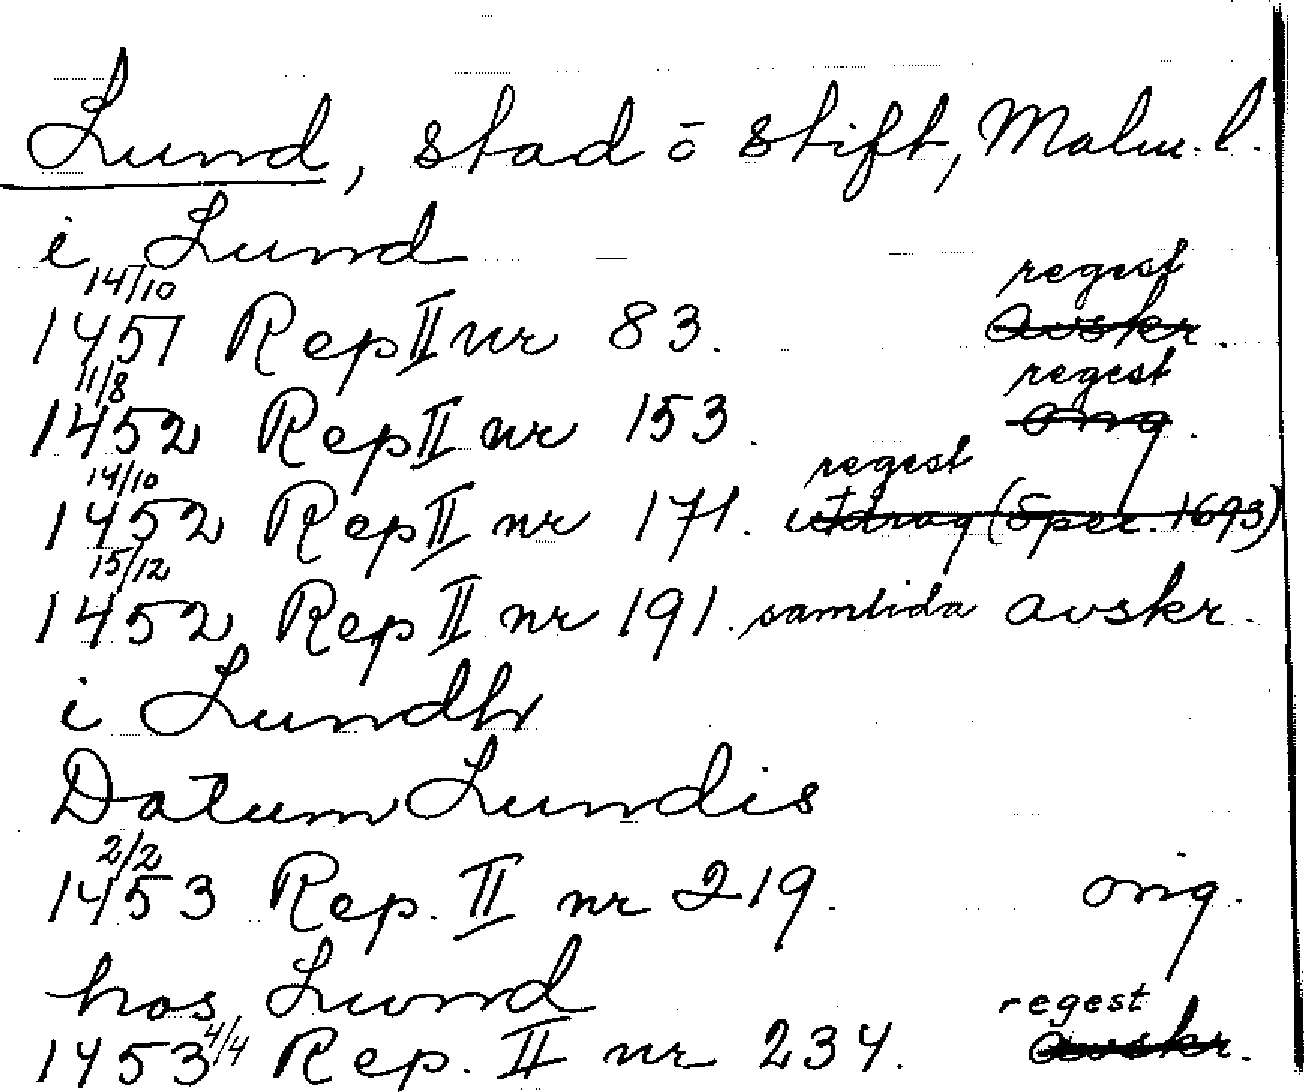 Lund, stad ō stift, Malm. l.
i Lund
14/10 regest
1451 Rep II nr 83. avskr.
11/8 regest
1452 Rep II nr 153. orig.
14/10 regest
1452 Rep II nr 171. utdrag (Sper. 1693)
15/12
1452 Rep II nr 191. samtida avskr.
i Lundh
Datum Lundis
2/2
1453 Rep. II nr 219. orig.
hos Lund
regest
1453 4/4 Rep. II nr 234. avskr.